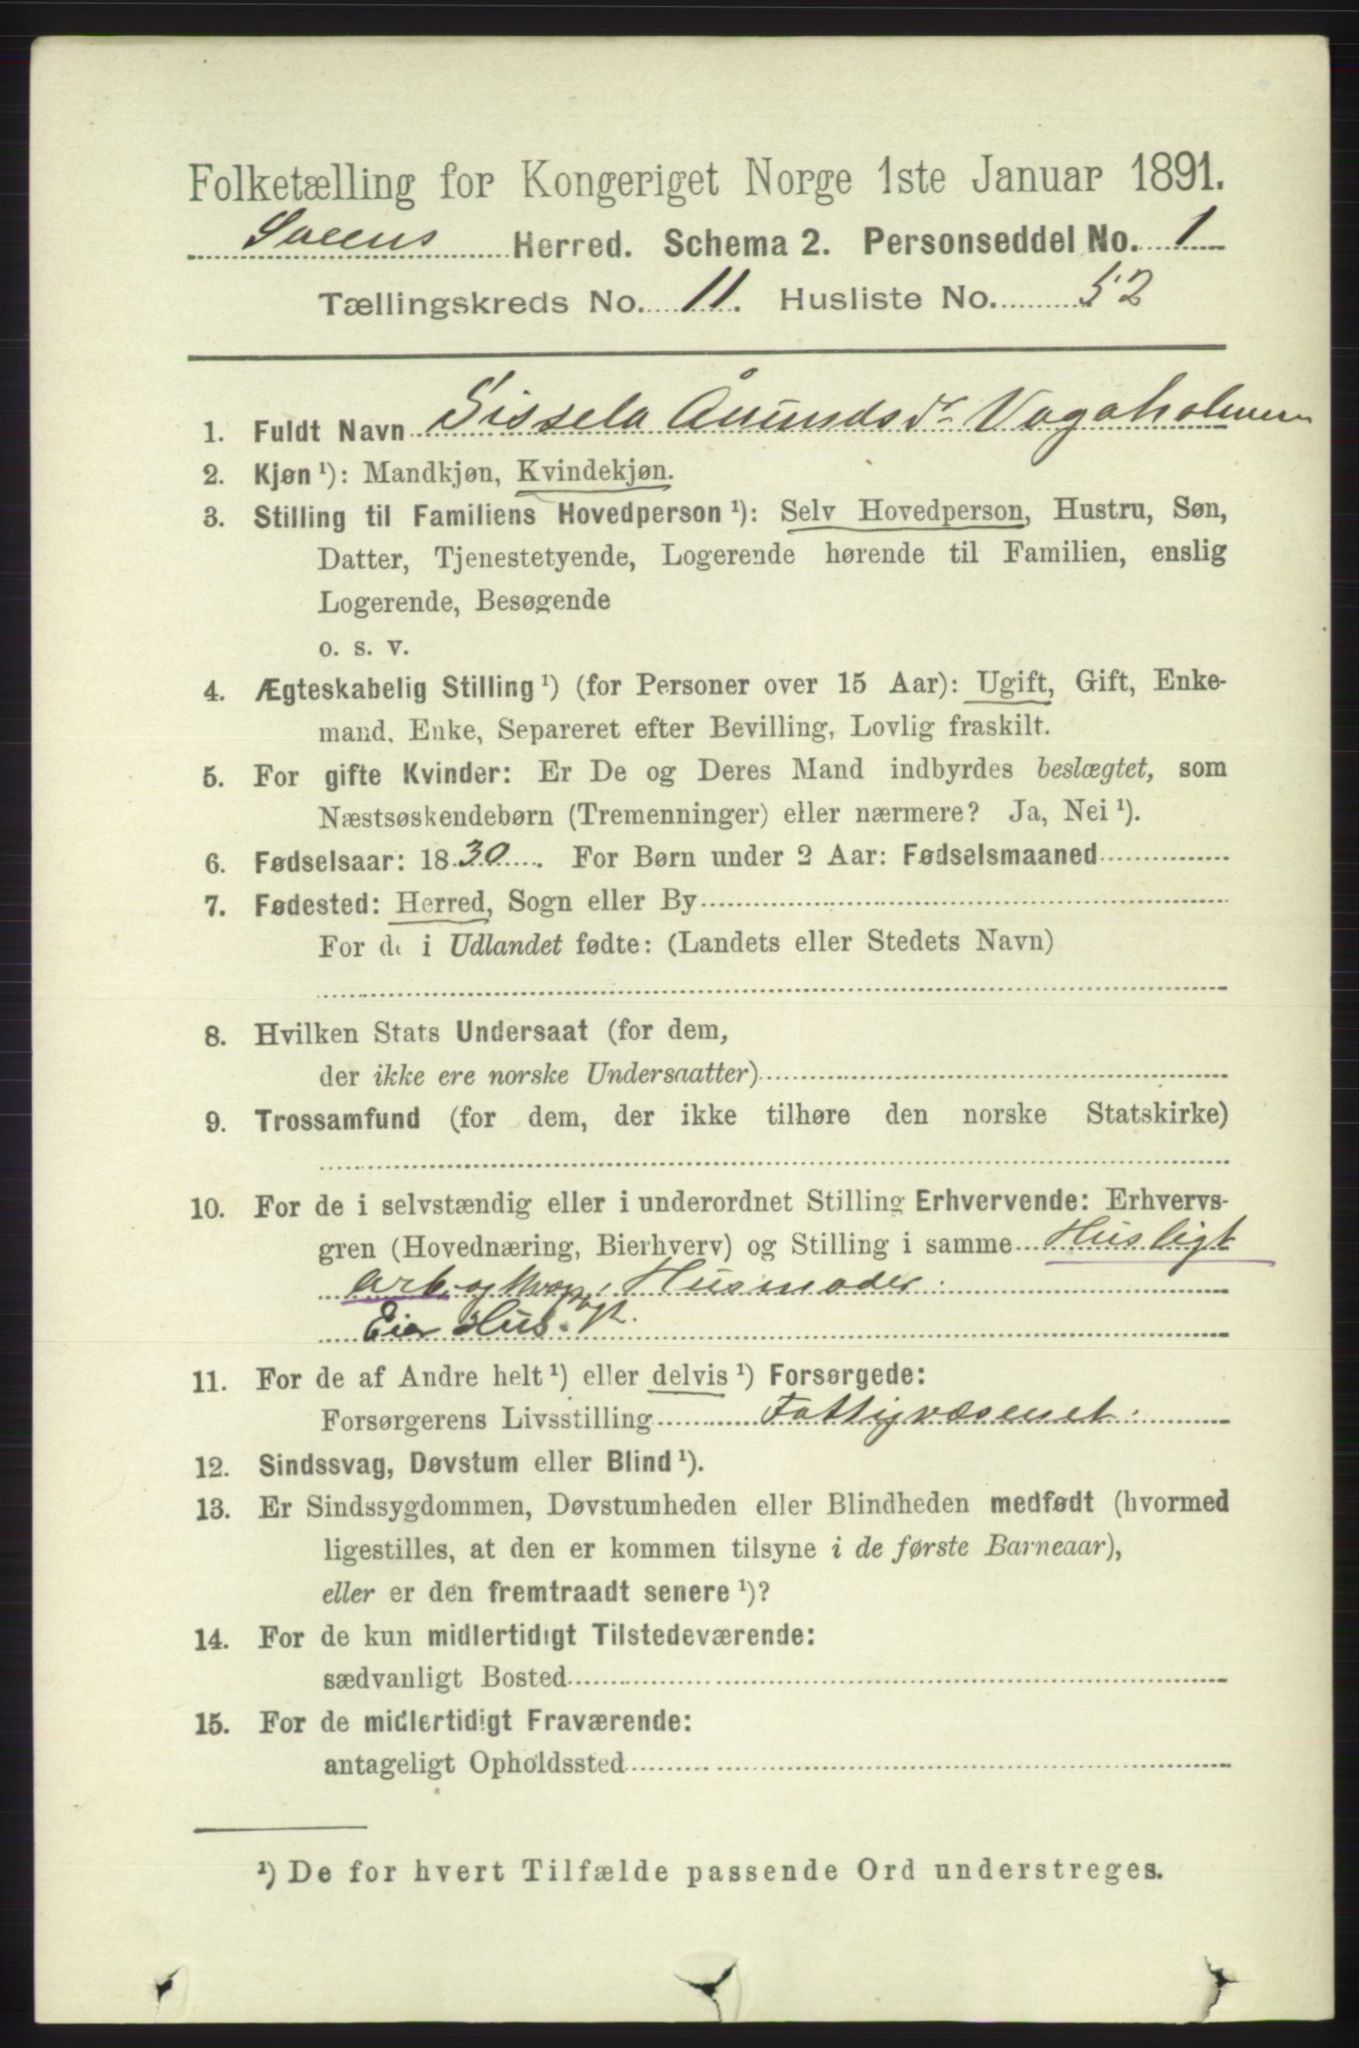 Folketælling for Kongeriget Norge 1ste Januar 1891.
Herred. Schema 2. Personseddel No. 1
Tællingskreds No. 11. Husliste No. 52
1. Fuldt Navn Sissela Åmunds dr Vågeholmen
2. Kjøn ¹): Mandkjøn, Kvindekjøn.
3. Stilling til Familiens Hovedperson ¹): Selv Hovedperson, Hustru, Søn,
Datter, Tjenestetyende, Logerende hørende til Familien, enslig
Logerende, Besøgende
o. s. v.
4. Ægteskabelig Stilling ¹) (for Personer over 15 Aar): Ugift, Gift, Enke-
mand, Enke, Separeret efter Bevilling, Lovlig fraskilt.
5. For gifte Kvinder: Er De og Deres Mand indbyrdes beslægtet, som
Næstsøskendebørn (Tremenninger) eller nærmere? Ja, Nei ¹).
6. Fødselsaar: 1830. For Børn under 2 Aar: Fødselsmaaned
7. Fødested: Herred, Sogn eller By
For de i Udlandet fødte: (Landets eller Stedets Navn)
8. Hvilken Stats Undersaat (for dem,
der ikke ere norske Undersaatter)
9. Trossamfund (for dem, der ikke tilhøre den norske Statskirke)
10. For de i selvstændig eller i underordnet Stilling Erhvervende: Erhvervs-
gren (Hovednæring, Bierhverv) og Stilling i samme Husligt
Arb. og Husmoder.
Eier Hus.
11. For de af Andre helt ¹) eller delvis ¹) Forsørgede:
Forsørgerens Livsstilling Fattigvæsenet.
12. Sindssvag, Døvstum eller Blind ¹).
13. Er Sindssygdommen, Døvstumheden eller Blindheden medfødt (hvormed
ligestilles, at den er kommen tilsyne i de første Barneaar),
eller er den fremtraadt senere ¹)?
14. For de kun midlertidigt Tilstedeværende:
sædvanligt Bosted
15. For de midlertidigt Fraværende:
antageligt Opholdssted
¹) De for hvert Tilfælde passende Ord understreges.